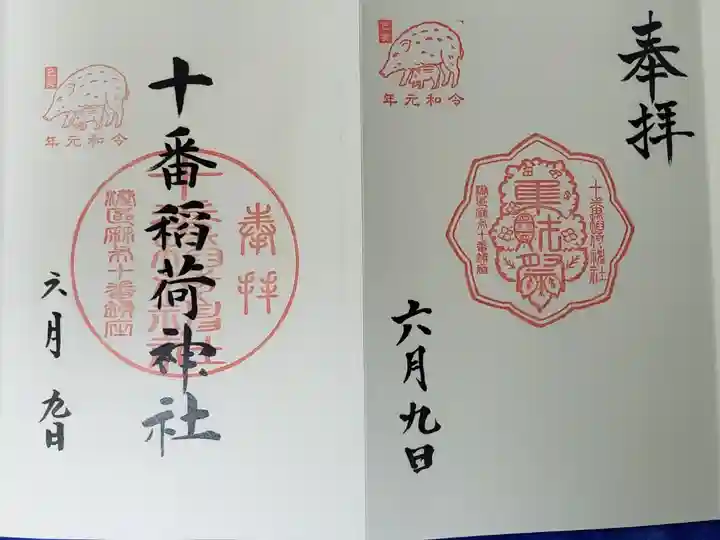 奉拝
己亥
令和元年
十番稲荷神社
港区麻布十番鎮座
六月九日
己亥
令和元年
奉拝
十番稲荷神社
港区麻布十番鎮座
六月九日